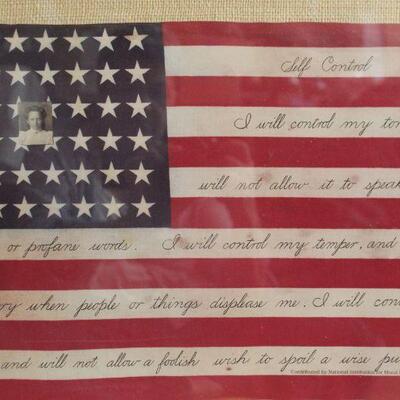 Self Control
I will control my
will not allow it to speak
or profane words. I will control my temper, and
when people or things displease me. I will
and will not allow a foolish wish to spoil a wise
Contributed by National Institution for Moral